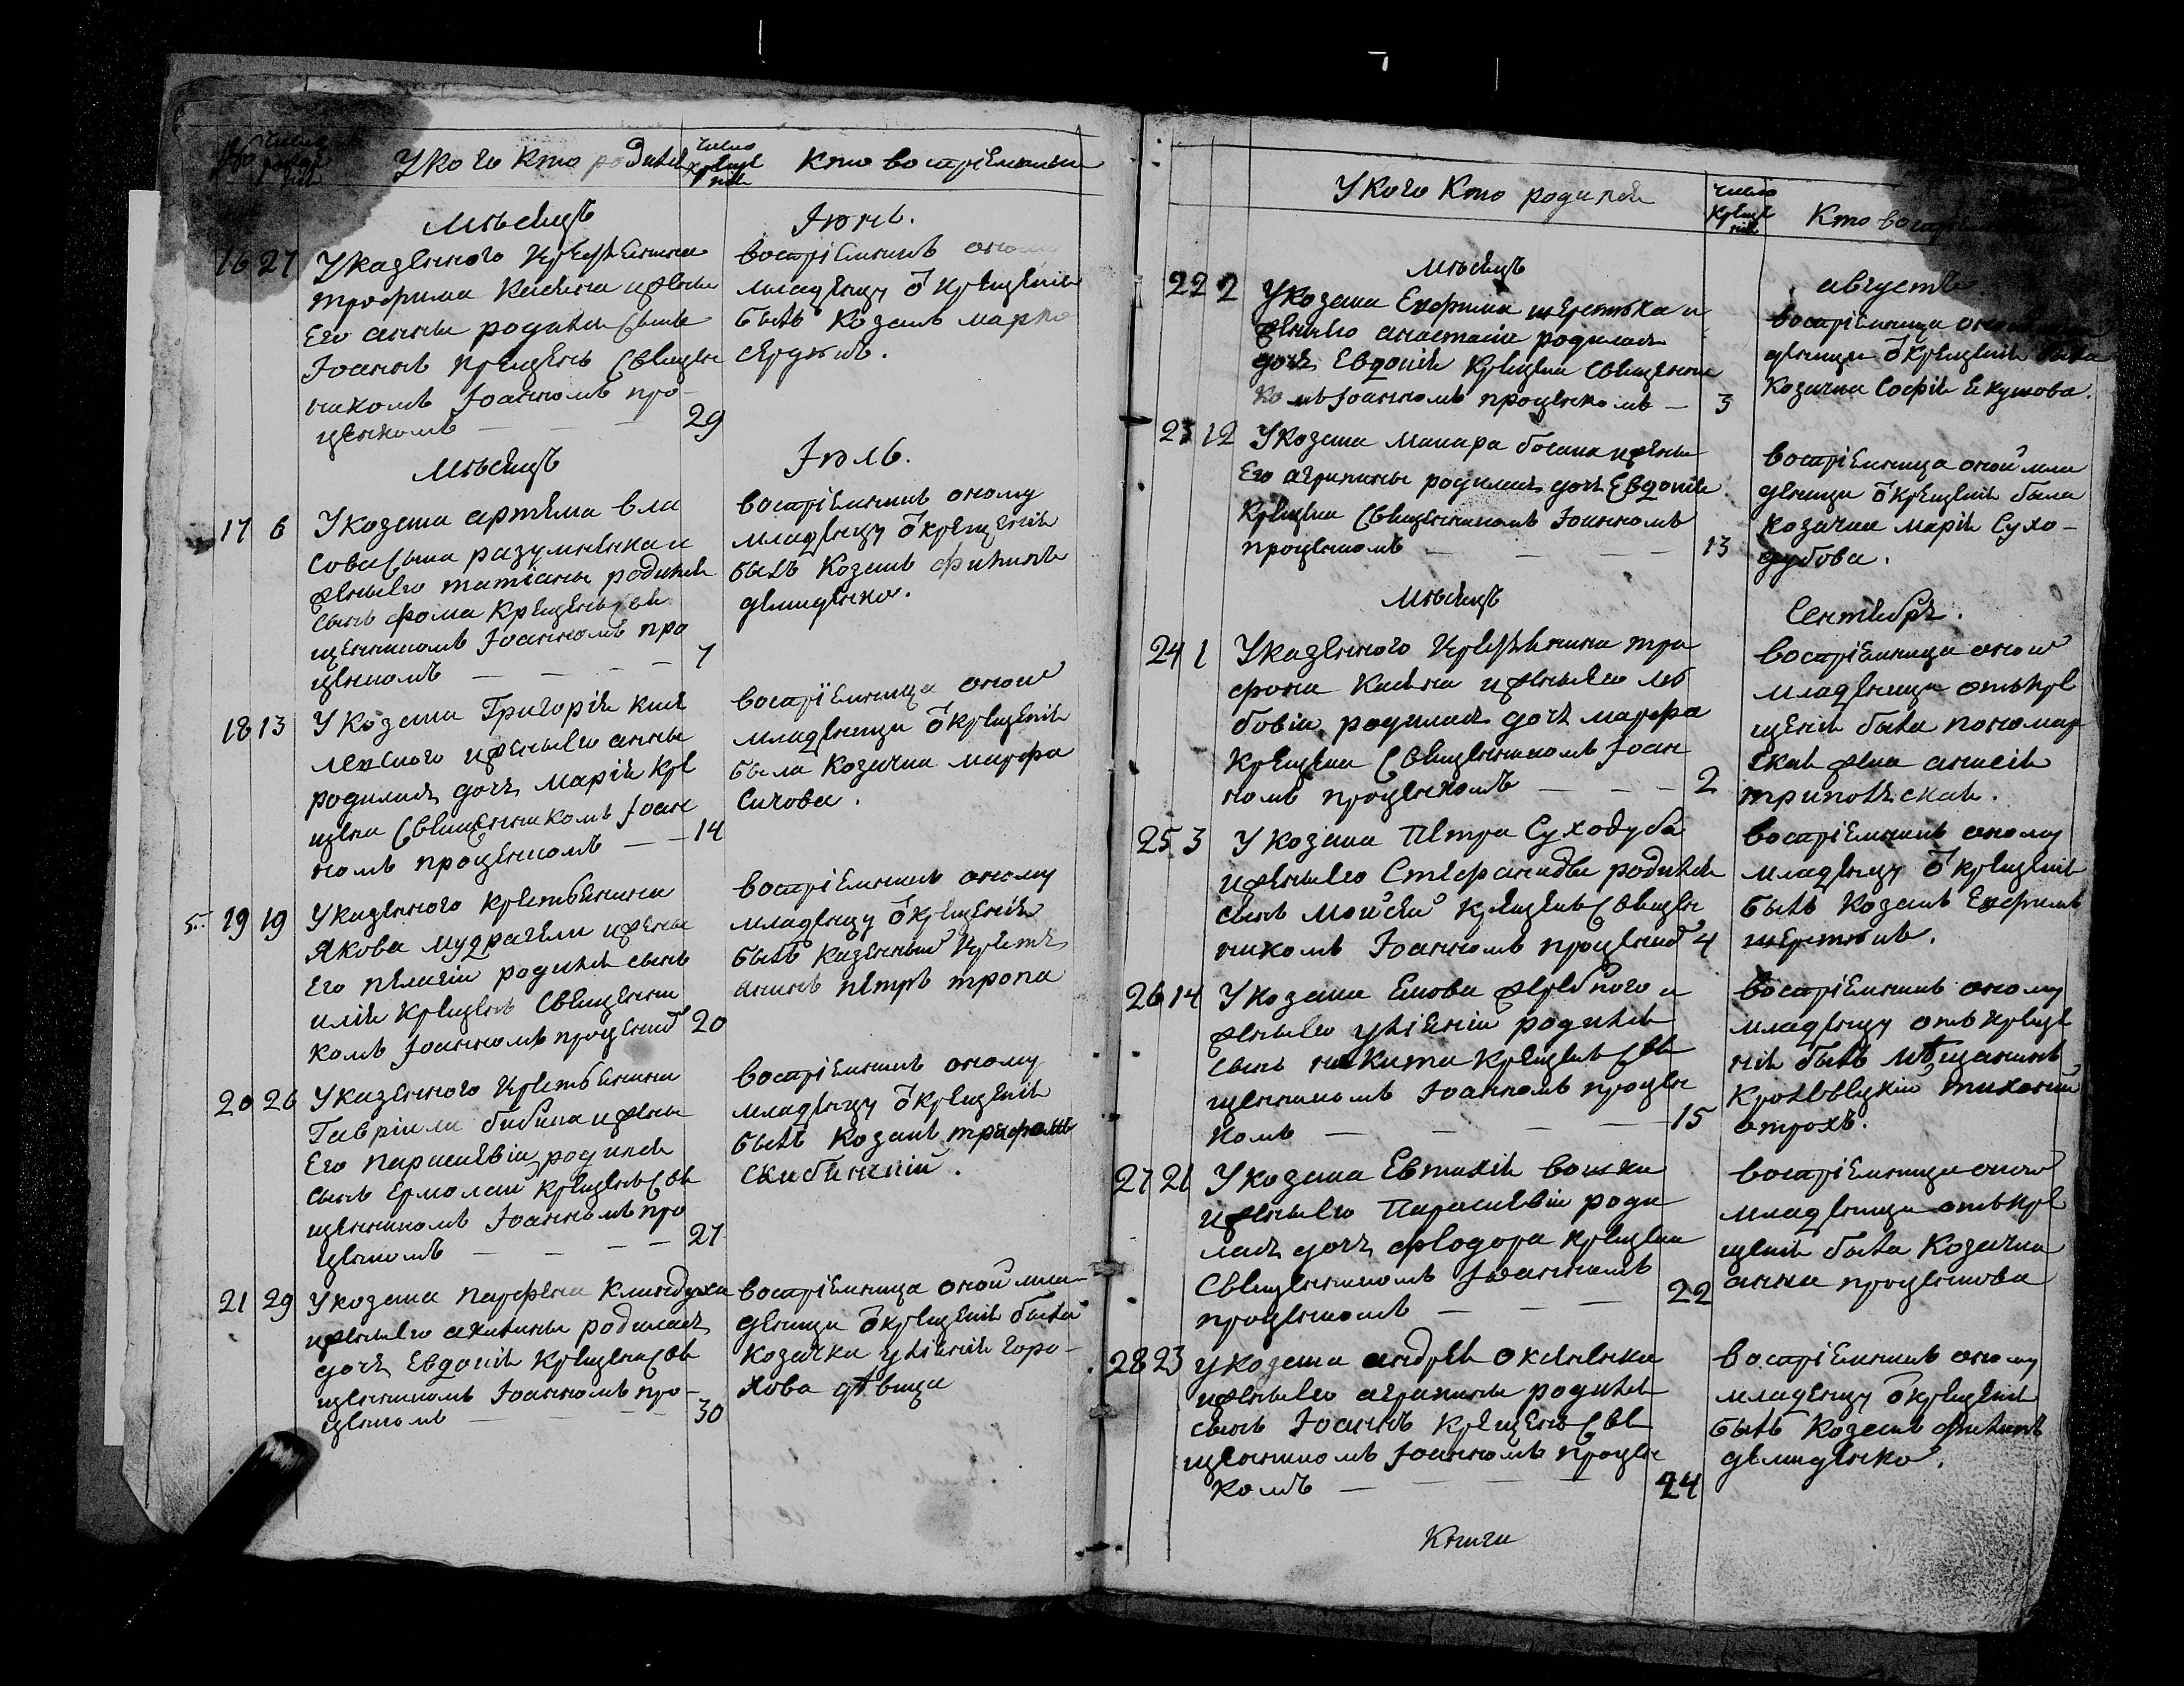 № число рожде нія
У кого кто родился
число креще нія
кто воспріемники
Мѣсяцъ
Іюнь.
16 27 У казенного крестьянина
трофима Касяна и жены
Его анны родился сынъ
Іоаннъ крещенъ Священ
никомъ Іоанномъ про-
ценкомъ — — — 29
воспріемникъ оному
младенцу ѿ крещенія
былъ козакъ марко
сердюкъ.
Мѣсяцъ
Іюль.
17 6 У козака артема вла
сова сына разумѣнка и
жены его татіаны родился
сынъ фома крещенъ Свя
щенникомъ Іоанномъ про
ценкомъ — — — 7
воспріемникъ оному
младенцу ѿ крещенія
былъ козакъ филипъ
демиденко.
18 13 У козака Григорія
и жены его анны
родилась дочь марія кре
щена Священникомъ Іоан
номъ проценкомъ — — 14
воспріемница оной
младеници ѿ крещенія
была козачка марфа
Сичова.
5. 19 19 У казенного крестьянина
Якова мудрагели и жены
Его пелагіи родился сынъ
илія крещенъ Священни
комъ Іоанномъ проценко 20
воспріемникъ оному
младенцу ѿ крещенія
былъ казенный кресть
янинъ петръ тропа
20 26 У казенного крестьянина
Гавріила бибика и жены
Его параскевіи родился
сынъ Ермолай крещенъ Свя
щенникомъ Іоанномъ про
ценкомъ — — — — 27
воспріемникъ оному
младенцу ѿ крещенія
былъ козакъ трофимъ
Скибинскій.
21 29 У козака парфена
и жены его акилины родилась
дочь Евдокія крещена Свя
щенникомъ Іоанномъ про-
ценкомъ — — — 30
воспріемница оной мла-
деници ѿ крещенія была
козачка уліянія горо-
хова дѣвица
У кого кто родился
число креще нія
Кто воспріемники
Мѣсяцъ
августъ
22 2 У козака Ефима шеретька и
жены его анастасіи родилась
дочь Евдокія крещена Священни
комъ Іоанномъ проценкомъ — 3
воспріемница оной мла
деници ѿ крещенія была
козачка Софія Екушова.
23 12 У козака макара босака и жены
Его агрипины родилась дочь Евдокія
крещена Священникомъ Іоанномъ
проценкомъ — — — 13
воспріемница оной мла
деници ѿ крещенія была
козачка марія Сухо-
дубова.
Мѣсяцъ
Сентябрь.
24 1 У казенного крестьянина тро
фима Касяна и жены его лю
бовіи родилась дочь марфа
крещена Священникомъ Іоан
номъ проценкомъ — — — 2
воспріемница оной
младеници отъ кре
щенія была пономар
ская жена анисія
трипольская.
25 3 У козака Петра Суходуба
и жены его Стефаниды родился
сынъ Моисей крещенъ Священ
никомъ Іоанномъ проценко 4
воспріемникъ оному
младенцу ѿ крещенія
былъ козакъ Ефимъ
шеретька.
26 14 У козака Якова жеребного и
жены его уліяніи родился
сынъ никита крещенъ Свя
щенникомъ Іоанномъ процен
комъ — — — — 15
воспріемникъ оному
младенцу отъ креще
нія былъ мѣщанинъ
кролевецкій тихоній
отрохъ.
27 21 У козака Евтихія вошка
и жены его Параскевіи роди
лась дочь феодора крещена
Священникомъ Іоанномъ
проценкомъ — — — 22
воспріемница оной
младеници отъ кре
щенія была козачка
анна проценкова
28 23 У козака андрея оксененка
и жены его агрипины родился
сынъ Іоаннъ крещенъ Свя
щенникомъ Іоанномъ процен
комъ — — — — 24
воспріемникъ оному
младенцу ѿ крещенія
былъ козакъ филипъ
демиденко.
Книги